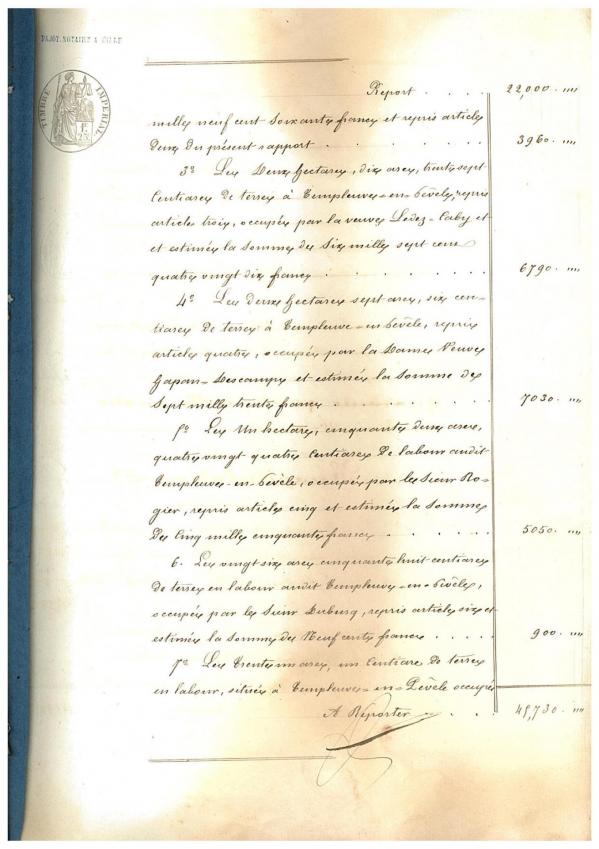 PAJOT, NOTAIRE A LILLE
TIMBRE IMPERIAL
Report . . . . 22,000. """
mille neuf cent soixante francs et repris article
deux du présent rapport . . . . . . . 3960. """
3º Les deux hectares, dix ares, trente sept
centiares de terres à Templeuve-en-Pévèle, repris
article trois, occupés par la veuve Ledez-Caby et
et estimés la somme de six mille sept cent
quatre vingt dix francs . . . . . . . 6790. """
4º Les deux hectares sept ares, six cen-
tiares de terres à Templeuve-en-Pévèle, repris
article quatre, occupés par la Dame Veuve
Descamps et estimés la somme de
sept mille trente francs . . . . . . . 7030. """
5º Les Un hectare, cinquante deux ares,
quatre vingt quatre centiares de labour audit
Templeuve-en-Pévèle, occupés par le Sieur Ro-
gier, repris article cinq et estimés la somme
de Cinq mille cinquante francs . . . . . 5050. """
6. Les vingt six ares cinquante huit centiares
de terres en labour audit Templeuve-en-Pévèle,
occupés par le Sieur Duburg, repris article six et
estimés la somme de Neuf cents francs . . . . . 900. """
7º Les trente un ares, un centiare de terres
en labour, situés à Templeuve-en-Pévèle occupés
A Reporter . . . . 45,730. """